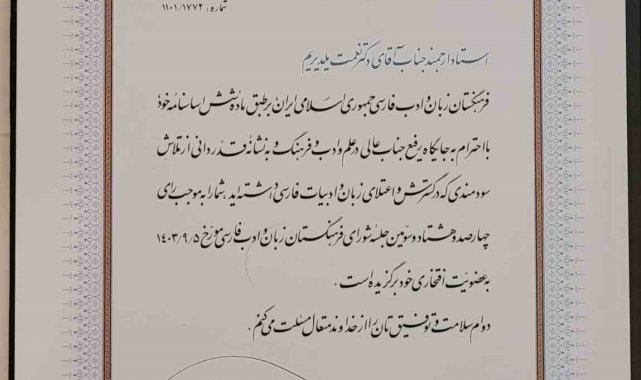 شماره: ۱۱۰۱/۱۷۷۲
استاد ارجمند جناب آقای دکتر نعمت یلدیریم
فرهنگستان زبان و ادب فارسی جمهوری اسلامی ایران بر طبق مادهٔ شش اساسنامهٔ خود
با احترام به جایگاه رفیع جناب عالی در علم و ادب و فرهنگ و به نشانهٔ قدردانی از تلاش
سودمندی که در گسترش و اعتلای زبان و ادبیات فارسی داشته‌اید، شما را به موجب رای
چهارصد و هشتاد و سومین جلسهٔ شورای فرهنگستان زبان و ادب فارسی مورخ ۱۴۰۳/۹/۵
به عضویت افتخاری خود برگزیده است.
دوام سلامت و توفیق تان را از خداوند متعال مسئلت می‌کنم.